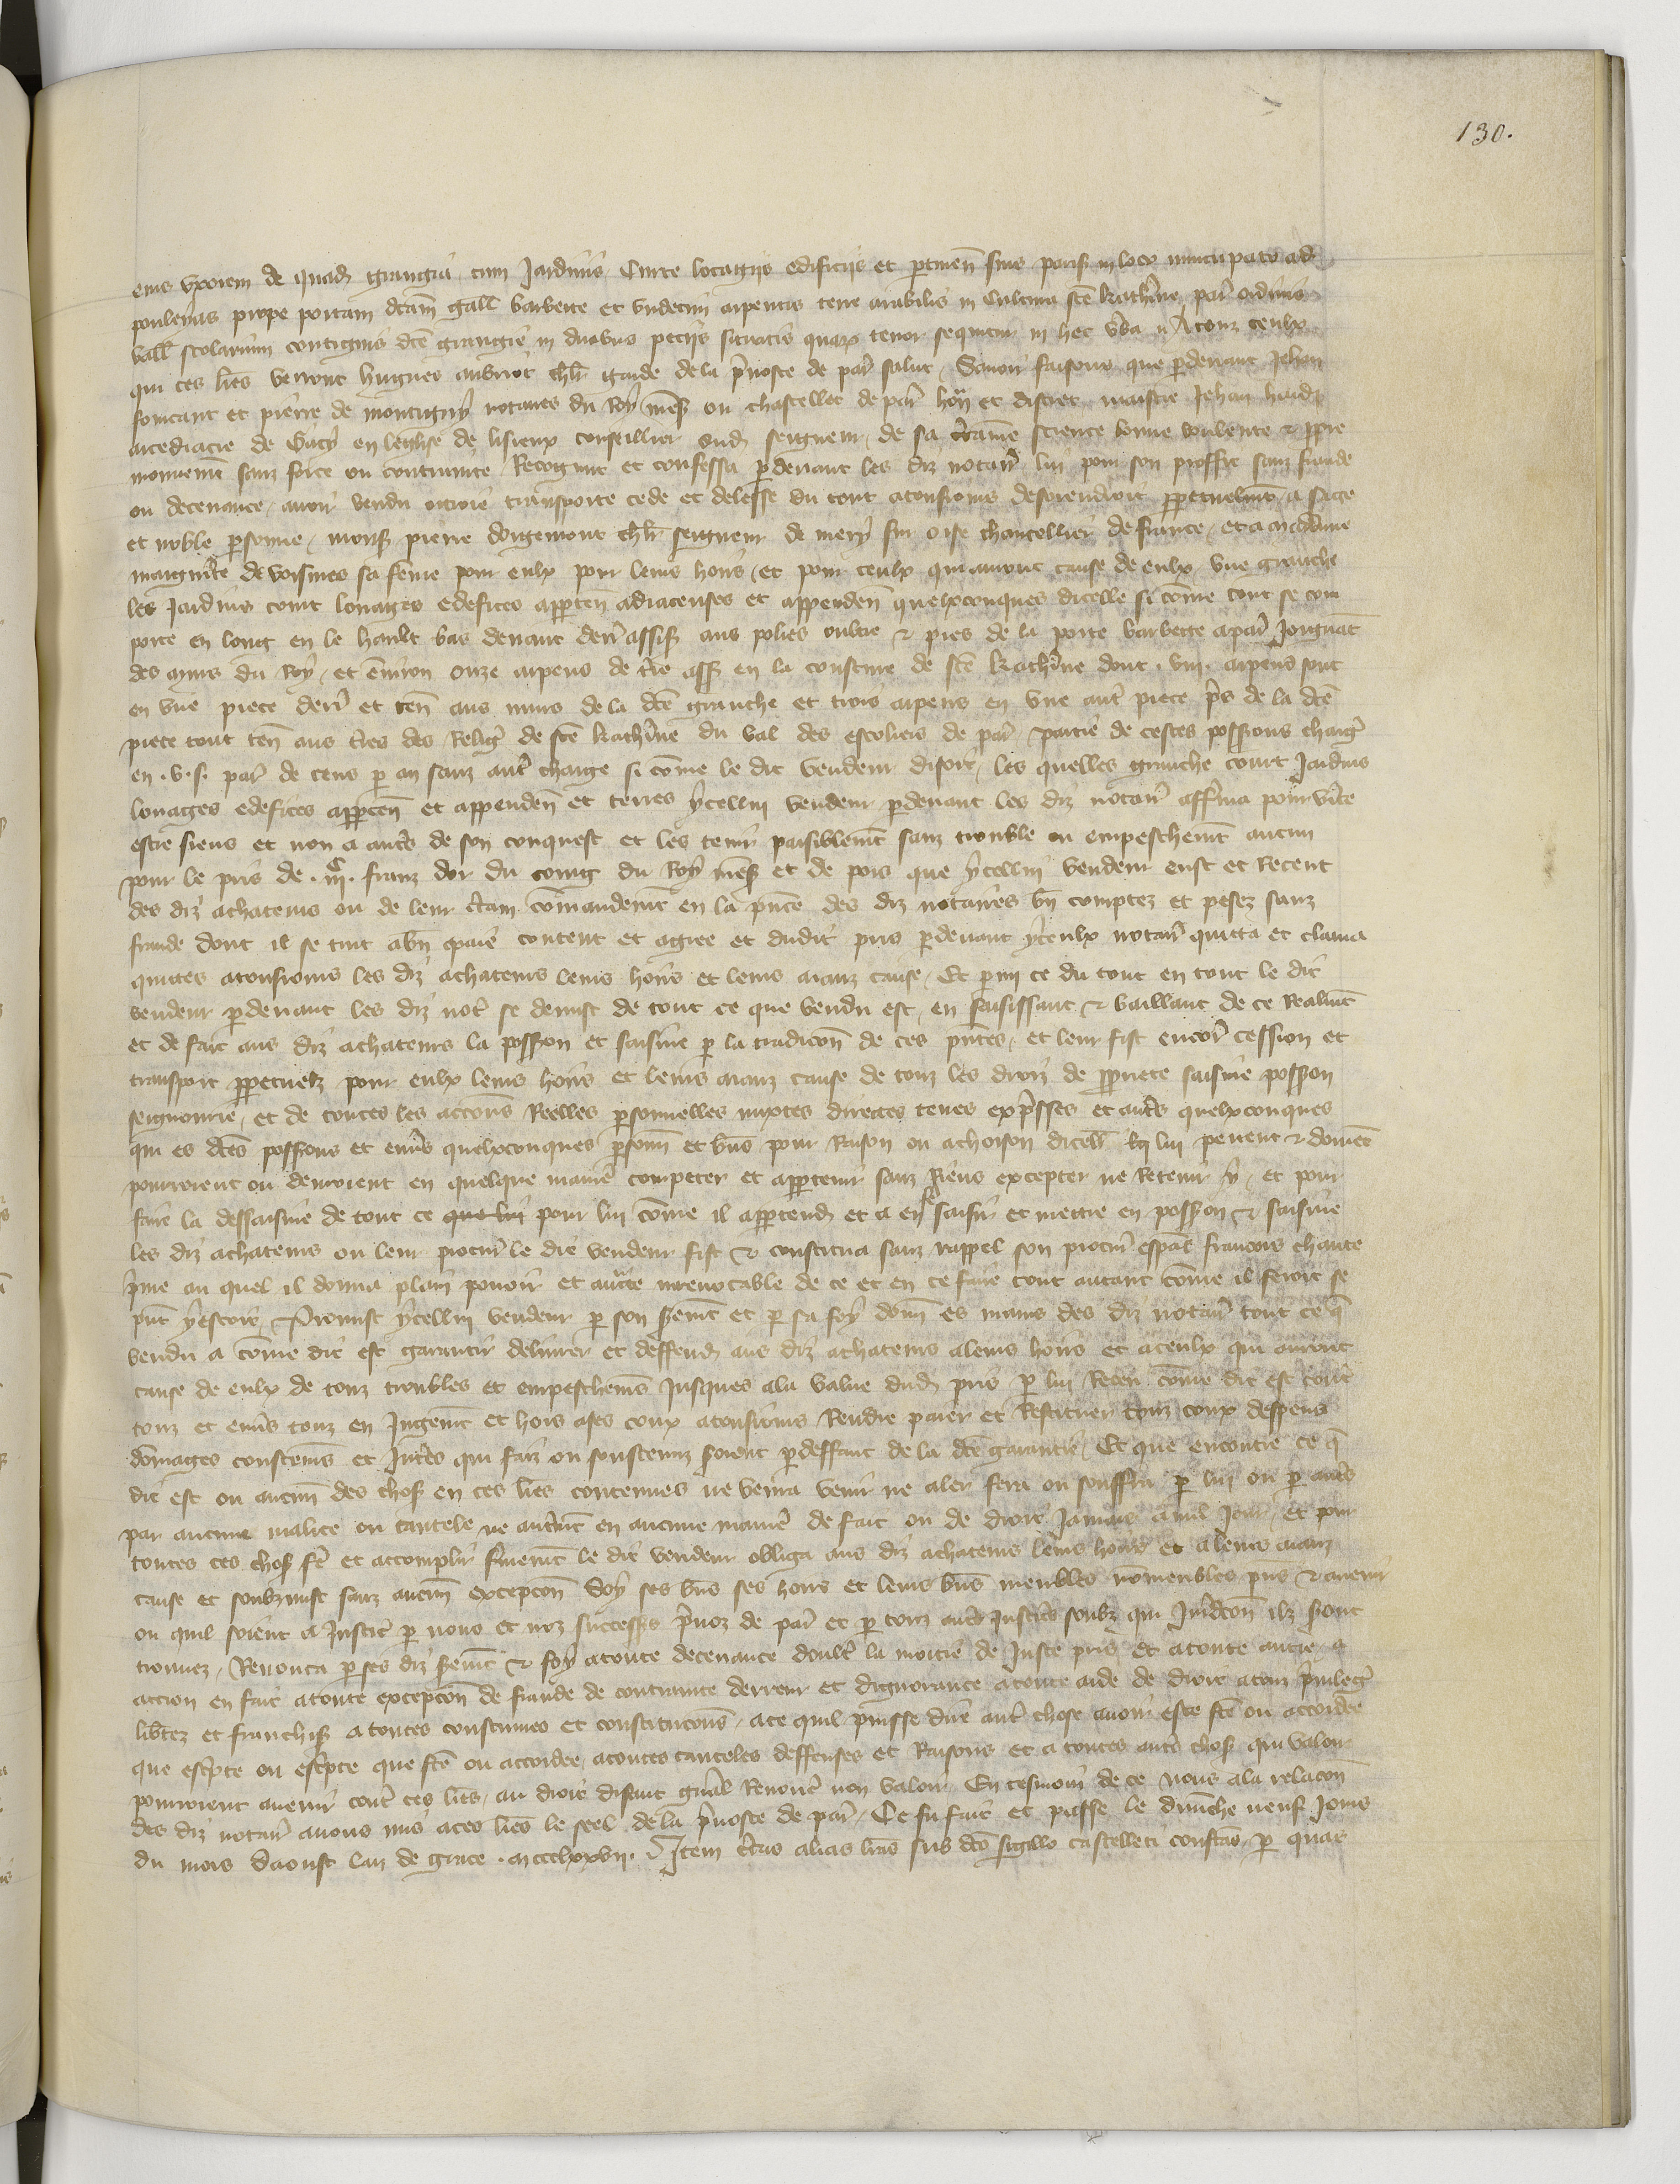 130.
eius uxorem de quad grangia cum Jardinis Curte locagiis edificiis et ptinen suis parisi in loco nuncupato ad
poulerias prope portam dcam gall barbette et undecim arpentis terre arabilis in Cultura sce katherine par ordinis
vall scolarium contiguis dce grangie in duabus peciis situatis quar tenor sequitur in hec vba A touz ceulx
qui ces lres verront hugues aubriot chlr garde de la pvoste de par salut Savoir faisons que pdevant Jehan
foucant et pierre de montigny notaires du Roy nres ou chastellet de par hon et discret maistre Jehan
arcediacre de Gacy en leglise de lisieux conseillier dud seigneur de sa ctaine science bonne voulente et ppre
mouvemt sanz force ou contrainte Recognut et confessa pdevant les diz notair lui pour son proffit sanz fraude
ou decevance avoir vendu ottroie transporte cede et delesse du tout atousiours desorendroit ppetuelmt a sage
et noble psonne mons pierre dorgemont chlr seigneur de mery sur oise chancellier de france et a madame
marguite de voisines sa feme pour eulx pour leurs hoirs et pour ceulx qui auront cause de eulx une granche
les Jardins court louages edefices apptenn adiacenses et appendenn quelxconques dicelle si come tout se com
porte en long en le hault bas devant derr assis aus polies oultre et pres de la porte barbette a par Joignant
des murs du Roy et environ onze arpens de tre ass en la cousture de ste katherine dont .viii. arpens sont
en une piece derr et ten aus murs de la dce granche et trois arpens en une autr piece pres de la dce
piece tout ten aus tres des Religx de ste katherine du val des escoliers de par partie de cestes possions charg
en .v.s. par de cens p an sanz autr charge si come le dit vendeur disoit les quelles granche court Jardins
louages edefices apptenn et appendenn et terres ycellui vendeur pdevant les diz notair afferma pour vite
estre siens et non a autrs de son conquest et les tenir paisiblemt sanz trouble ou empeschemt aucun
pour le pris de .iiic. franz dor du coing du Roy nres et de pois que ycellui vendeur eust et Recent
des diz achateurs ou de leur ctain comandemt en la pnce des diz notaires bn comptez et pesez sanz
fraude dont il se tint a bn paie content et agree et dudit pris pdevant yceulx notair quitta et clama
quittes atousiours les diz achateurs leurs hoirs et leurs aianz cause Et pmi ce du tout en tout le dit
vendeur pdevant les diz not se demist de tout ce que vendu est en saisissant et baillant de ce Realmt
et de fait aus diz achateurs la possion et saisine p la tradicon de ces pntes et leur fist encor cession et
transport ppetuelz pour eulx leurs hoirs et leurs aianz cause de touz les droiz de pprete saisine possion
seignourie et de toutes les accions Reelles psonnelles mixtes directes teues expsses et autrs quelxconques
qui es dces possions et envs quelxconques psonn et bns pour Raison ou achoison dicell a lui pevent et doivet
pourroient ou devroient en quelque manie competer et apptenir sanz Riens excepter ne Retenir y et pour
faire la dessaisine de tout ce que lui pour lui come il apptend et a en saisir et mettre en possion et saisine
les diz achateurs ou leur procur le dit vendeur fist et constitua sanz rappel son procur espal francois chante
pme au quel il donna plain pouoir et aucte irrevocable de ce et en ce faire tout autant come il feroit se
pnt y estoit Promist ycellui vendeur p son smt et p sa foy donn es mains des diz notair tout ce q
vendu a come dit est garantir delivrer et deffend aus diz achateurs a leurs hoirs et a ceulx qui auront
cause de eulx de touz troubles et empeschems Jusques a la value dud pris p lui Receu come dit est contr
touz et envs touz en Jugemt et hors a ses coux atousiours Rendre paier et Restituer touz coux despens
domages coustems et Jntres qui faiz ou soustenuz soient pdeffaut de la dce garantie Et que encontre ce q
dit est ou aucun des chos en ces lres contenues ne venra venir ne aler fera ou souffra p lui ou p autrs
par aucune malice ou cautele ne autremt en aucune manie de fait ou de droit Jamais a nul Jour Et pour
toutes ces chos fr et accomplir fmemt le dit vendeur obliga aus diz achateurs leurs hoirs et a leurs aianz
cause et soubzmist sanz aucun excepcon soy ses bns ses hoirs et leurs bns meubles nomeubles pns et avenir
ou quil soient a Justic p nous et noz successrs pvoz de par et p touz autrs Justics soubz qui Juridcon ilz sont
trouvez Renonca p ses diz smt et foy atoute decevance doultr la moitie de Juste pris et atoute autre a
accion en fait atoute excepcon de fraude de contrainte derreur et dignorance atoute aide de droit atouz pvileg
libtez et franchis a toutes coustumes et constitucons a ce quil puisse dire autr chose avoir este fce ou accordee
que escripte ou escripte que fce ou accordee atoutes cauteles deffenses et Raisons et a toutes autrs chos qui valoir
pourroient avenir contr ces lres au droit disant gnal Renonc non valoir En tesmoin de ce nous a la relacon
des diz notair avons mis a ces lres le seel de la pvoste de par Ce fu fait et passe le dimenche neuf Jours
du mois daoust lan de grace .mccclxxvii. Item ctas alias lras sub dco sigillo castelleti confcas p quas